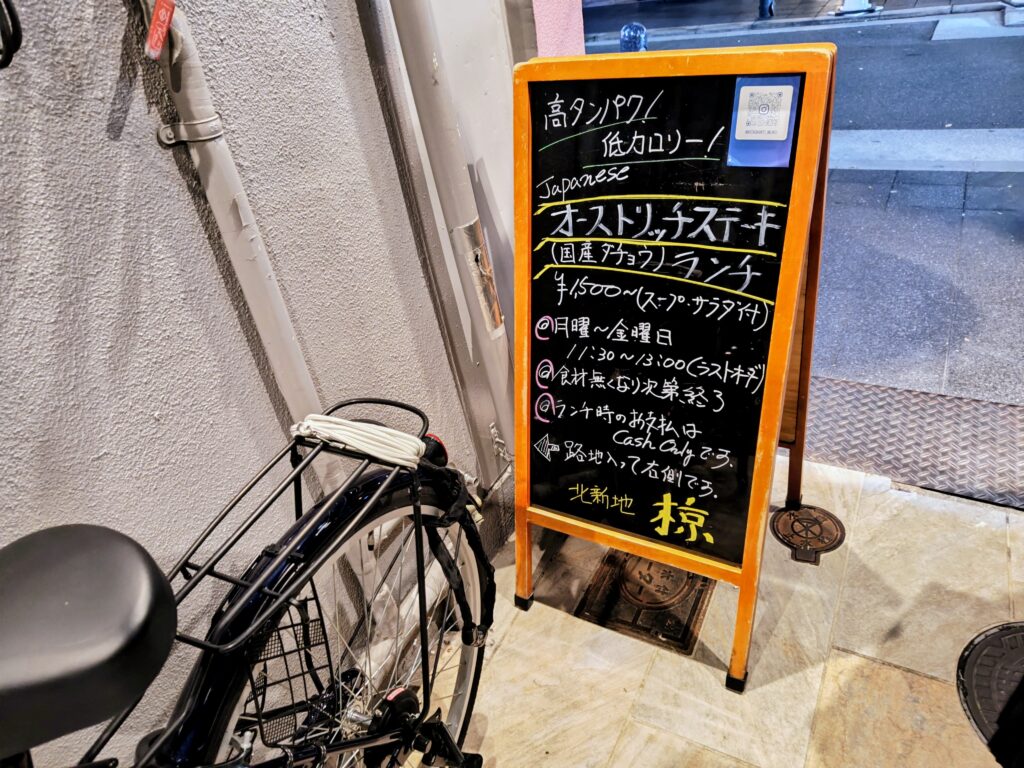 高タンパク!
低カロリー!
Japanese
オーストリッチステーキ
(国産ダチョウ) ランチ
¥1,500〜(スープ・サラダ付)
@月曜〜金曜日
11:30〜13:00(ラストオーダー)
@食材無くなり次第終了
@ランチ時のお支払は
Cash Onlyです.
路地入って右側です.
北新地 椋